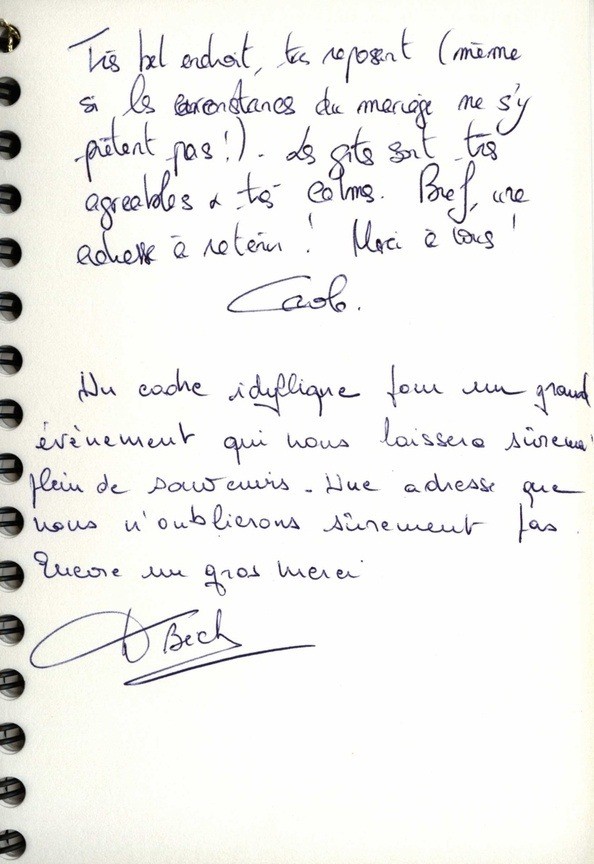 Très bel endroit, très reposant (même
si les circonstances du mariage ne s'y
prêtent pas !). Les gîtes sont très
agréables & très calmes. Bref, une
adresse à retenir ! Merci à tous !
Carole.
Un cadre idyllique pour un grand
évènement qui nous laissera sûrement
plein de souvenirs. Une adresse que
nous n'oublierons sûrement pas.
Encore un gros merci
D Bech